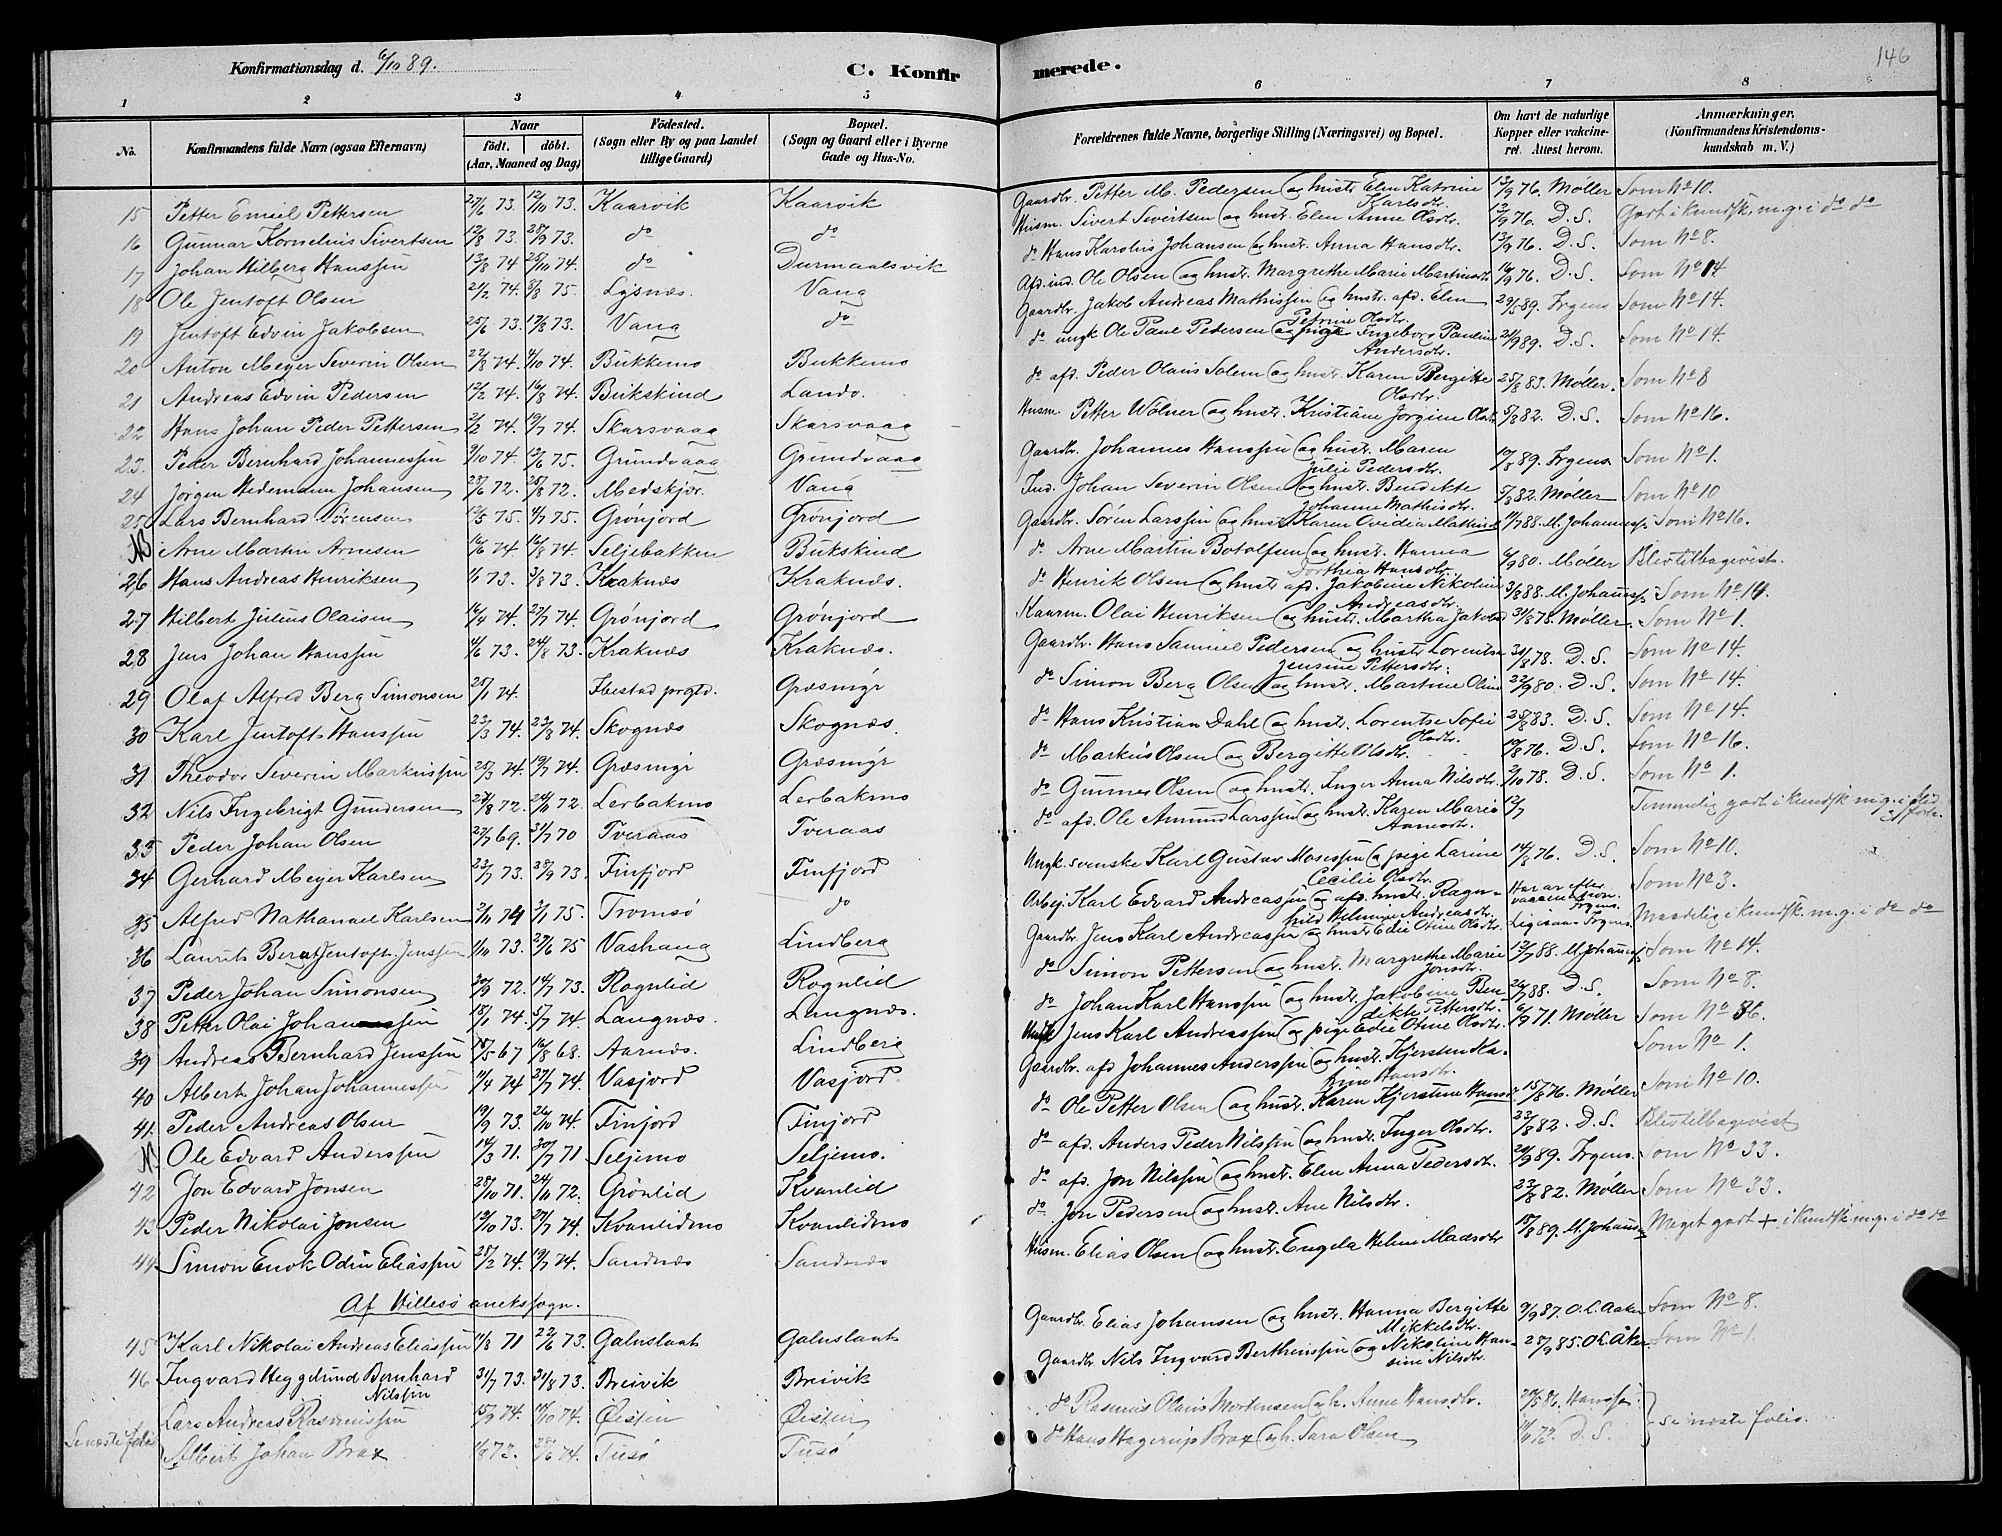 Konfirmationsdag d. 6/10 89.
C. Konfirmerede.
146
1 2 3 4 5 6 7 8
No.
Konfirmandens fulde Navn (ogsaa Efternavn)
Naar
født. døbt.
(Aar, Maaned og Dag)
Fødested.
(Sogn eller By og paa Landet
tillige Gaard)
Bopæl.
(Sogn og Gaard eller i Byerne
Gade og Hus-No.
Forældrenes fulde Navne, borgerlige Stilling (Næringsvei) og Bopæl.
Om havt de naturlige
Kopper eller vakcine-
ret. Attest herom.
Anmærkninger.
(Konfirmandens Kristendoms-
kundskab m. V.)
15 Petter Emiel Pettersen 27/6 73. 12/10 73. Kaarvik Kaarvik Gaardbr. Petter M. Pedersen og hustr. Elen Katrine Karlsdtr. 13/9 76. Møller Som No 10.
16 Gunnar Kornelius Sivertsen 12/8 73. 28/9 73. do do Husm. Sivert Sivertsen og hust. Elen Anne Olsdtr. 12/9 76. D. S. Godt i kundsk. m.g. i do do
17 Johan Hilberg Hanssen 13/8 74 25/10 74. do Durmaalsvik do Hans Karolius Johansen og hust. Anna Hansdtr. 13/9 76. D. S. Som No 8.
18 Ole Jentoft Olsen 21/2 74. 8/3 75. Lysnæs. Vang Afd. ind. Ole Olsen og hust. Margrethe Marie Martinsdtr. 16/9 76. D. S. Som No 14
19 Jentoft Edvin Jakobsen 25/6 73. 17/8 73. Vang do Gaardbr. Jakob Andreas Mathissen og hustr. afd. Elen Petrine Olsdtr. 29/5 89. Irgens Som No 14.
20 Anton Meyer Severin Olsen 22/8 74. 4/10 74. Bukkemo Bukkemo do ungk Ole Paul Pedersen og pige Ingeborg Pauline Andersdtr. 21/9 89. D. S. Som No 14.
21 Andreas Edvin Pedersen 12/2 74. 16/8 74. Bukskind Landv. do afd. Peder Olaus Solem og hustr. Karen Bergitte Olsdtr. 25/8 83. Møller. Som No 8
22 Hans Johan Peder Pettersen 2/2 74. 19/7 74. Skarsvaag Skarsvaag Husm. Petter Wolner og hustr. Kristiane Jorgine Olsdtr. 5/8 82. D. S. Som No 16.
23. Peder Bernhard Johannessen 9/10 74. 13/6 75. Grundvaag Grundvaag Gaardbr. Johannes Hanssen og hust. Maren Julie Pedersdtr. 19/8 89. Irgens. Som No 1.
24 Jørgen Hedemann Johansen 23/6 72. 25/8 72. Medskjær. Vang Ind. Johan Severin Olsen og hustr. Bendikte Johanne Mathisdtr. 5/8 82. Møller Som No 10
25 Lars Bernhard Sørensen 12/5 75. 4/7 75. Grønjord Grønjord Gaardbr. Søren Larssen og hust. Karen Ovidia Mathisd 11/7 88. M. Johanness. Som No 16.
Arne Martin Arnesen 16/6 74 16/8 74. Seljebakken Bukskind do Arne Martin Botolfsen og hust. Hanna Dorthia Hansdtr. 6/9 80. Møller Blev tilbagevist.
26 Hans Andreas Henriksen 1/1 73. 3/8 73. Kraknæs Kraknæs. do Henrik Olsen og hust afd. Jakobine Nikoline Andreasdtr. 3/8 88. M. Johanness. Som No 14.
27 Hilbert Julius Olaisen 16/4 74. 27/7 74. Grønjord Grønjord Kaarm. Olai Henriksen og hustr. Martha Jakobsd 31/8 78. Møller. Som No 1.
28 Jens Johan Hanssen 4/6 73. 24/8 73. Kraknæs Kraknæs. Gaardbr. Hans Samuel Pedersen og hustr. Lorentse Jensine Pettersdtr. 31/8 78. D. S. Som No 14.
29 Olaf Alfred Berg Simonsen 25/1 74. Ibestad prgld. Græsmyr do Simon Berg Olsen og hust. Martine Oline 22/9 80. D. S. Som No 14.
30 Karl Jentoft Hanssen 23/3 74. 23/8 74. Skognæs Skognæs. do Hans Kristian Dahl og hust. Lorentse Sofie Olsdtr. 25/8 83. D. S. Som No 14.
31 Theodor Severin Markussen 25/3 74. 19/7 74. Græsmyr Græsmyr do Markus Olsen og Bergitte Olsdtr. 19/8 76. D. S. Som No 16.
32 Nils Ingebrigt Gundersen 27/8 72. 24/11 72. Lerbakmo Lerbakmo do Gunner Olsen og hust. Inger Anna Nilsdtr. 2/10 78. D. S. Som No 1.
33 Peder Johan Olsen 27/7 69. 31/7 70 Tveraas Tveraas do afd. Ole Amund Larssen og hust. Karen Marie Arnesdtr. 12/7 Temmelig godt i kundsk. m.g. i flid og forh.
34 Gerhard Meyer Karlsen 23/7 73. 28/9 73. Finfjord Finfjord Ungk. svenske Karl Gustav Mosessen og pige Larine Cecilie Olsdtr. 14/8 76. D. S. Som No 10.
35 Alfred Nathanael Karlsen 2/11 74 3/1 75. Tromsø do Arbej. Karl Edvard Andreassen og afd. hustr. Ragnhild Helmine Andreasdtr. Har ar efter vaccination. Irgens. Som No 3.
36 Laurits Berat Jentoft Jenssen 1/10 73. 27/6 75 Vashaug Lindberg Gaardbr. Jens Karl Andreassen og hustr. Edie Otine Olsdtr. Ligesaa Irgens. Maadelig i kundsk. m.g. i do do
37 Peder Johan Simonsen 20/9 72. 14/7 73. Rognlid Rognlid do Simon Pettersen og hust. Margrethe Marie Jonsdtr. 12/7 88. M. Johanness. Som No 14.
38 Petter Olai Johanssen 18/1 74. 5/7 74. Langnæs. Langnæs. do Johan Karl Hanssen og hust. Jakobine Bendikte Pettersdtr. 24/7 88. D. S. Som No 8.
39 Andreas Bernhard Jenssen 18/5 67 16/8 68. Aarnæs. Lindberg Jens Karl Andreassen og pige Edie Otine Olsdtr. 6/9 71. Møller Som No 36.
40 Albert Johan Johannessen 11/4 74 27/7 74. Vasjord Vasjord. Gaardbr. afd Johannes Anderssen og hust. Kjersten Hansdtr. Som No 1.
41. Peder Andreas Olsen 19/9 73. 26/10 74. Finjord Finjord do Ole Petter Olsen og hustr. Karen Kjerstine Hansd 15/8 76. Møller Som No 10.
Ole Edvard Anderssen 14/3 71. 30/7 71 Seljemo Seljemo. do afd. Anders Peder Nilssen og hust. Inger Olsdtr. 23/8 82. D. S. Blev tilbagevist
42 Jon Edvard Jonsen 28/10 71. 24/11 72. Grønlid Kvanlid do afd. Jon Nilssen og hustr. Elen Anna Pedersdtr. 20/9 89. Irgens. Som No 33.
43 Peder Nikolai Jonsen 12/10 73. 27/7 74. Kvanlidmo Kvanlidmo do Jon Pedersen og hust. Ane Nilsdtr. 23/8 82. Møller Som No 33.
44 Simon Enok Odin Eliassen 28/2 74. 19/7 74. Sandnæs Sandnæs Husm. Elias Olsen og hust. Engela Heline Madsdtr 15/8 89. M. Johanss Meget godt + i kundsk. m.g. i do do
Af Hillesø anekssogn.
45 Karl Nikolai Andreas Eliassen 11/8 71 22/6 73. Galnslaat Galnslaat Gaardbr. Elias Johansen og hust. Hanna Bergitte Mikkelsdtr. 9/9 87. O. C. Aaker Som No 8.
46 Ingvard Heggelund Bernhard Nilssen 31/7 73. 31/8 73. Breivik Breivik Gaardbr Nils Ingvard Berthinssen og Nikoline Hansine Nilsdtr. 28/9 85. Ol. Aker. Som No 1.
Lars Andreas Rasmussen 15/9 74. 18/10 74. Øistein Øistein do Rasmus Olaus Mortensen og h. Anne Hansdtr. 29/5 86. Hanssen.
Se næste folio Albert Johan Brox 1/8 73. 28/6 74. Tusø Tusø do Hans Hagerup Brox og h. Sara Olsen D. S. se næste folio.